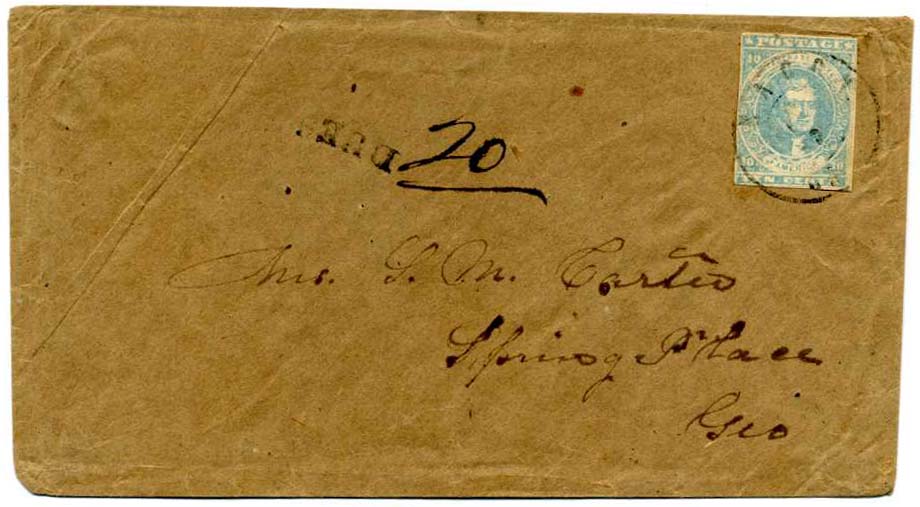 POSTAGE
10
TEN CENTS
DUE 20
Mrs. S. M. Carter
Spring Place
Geo